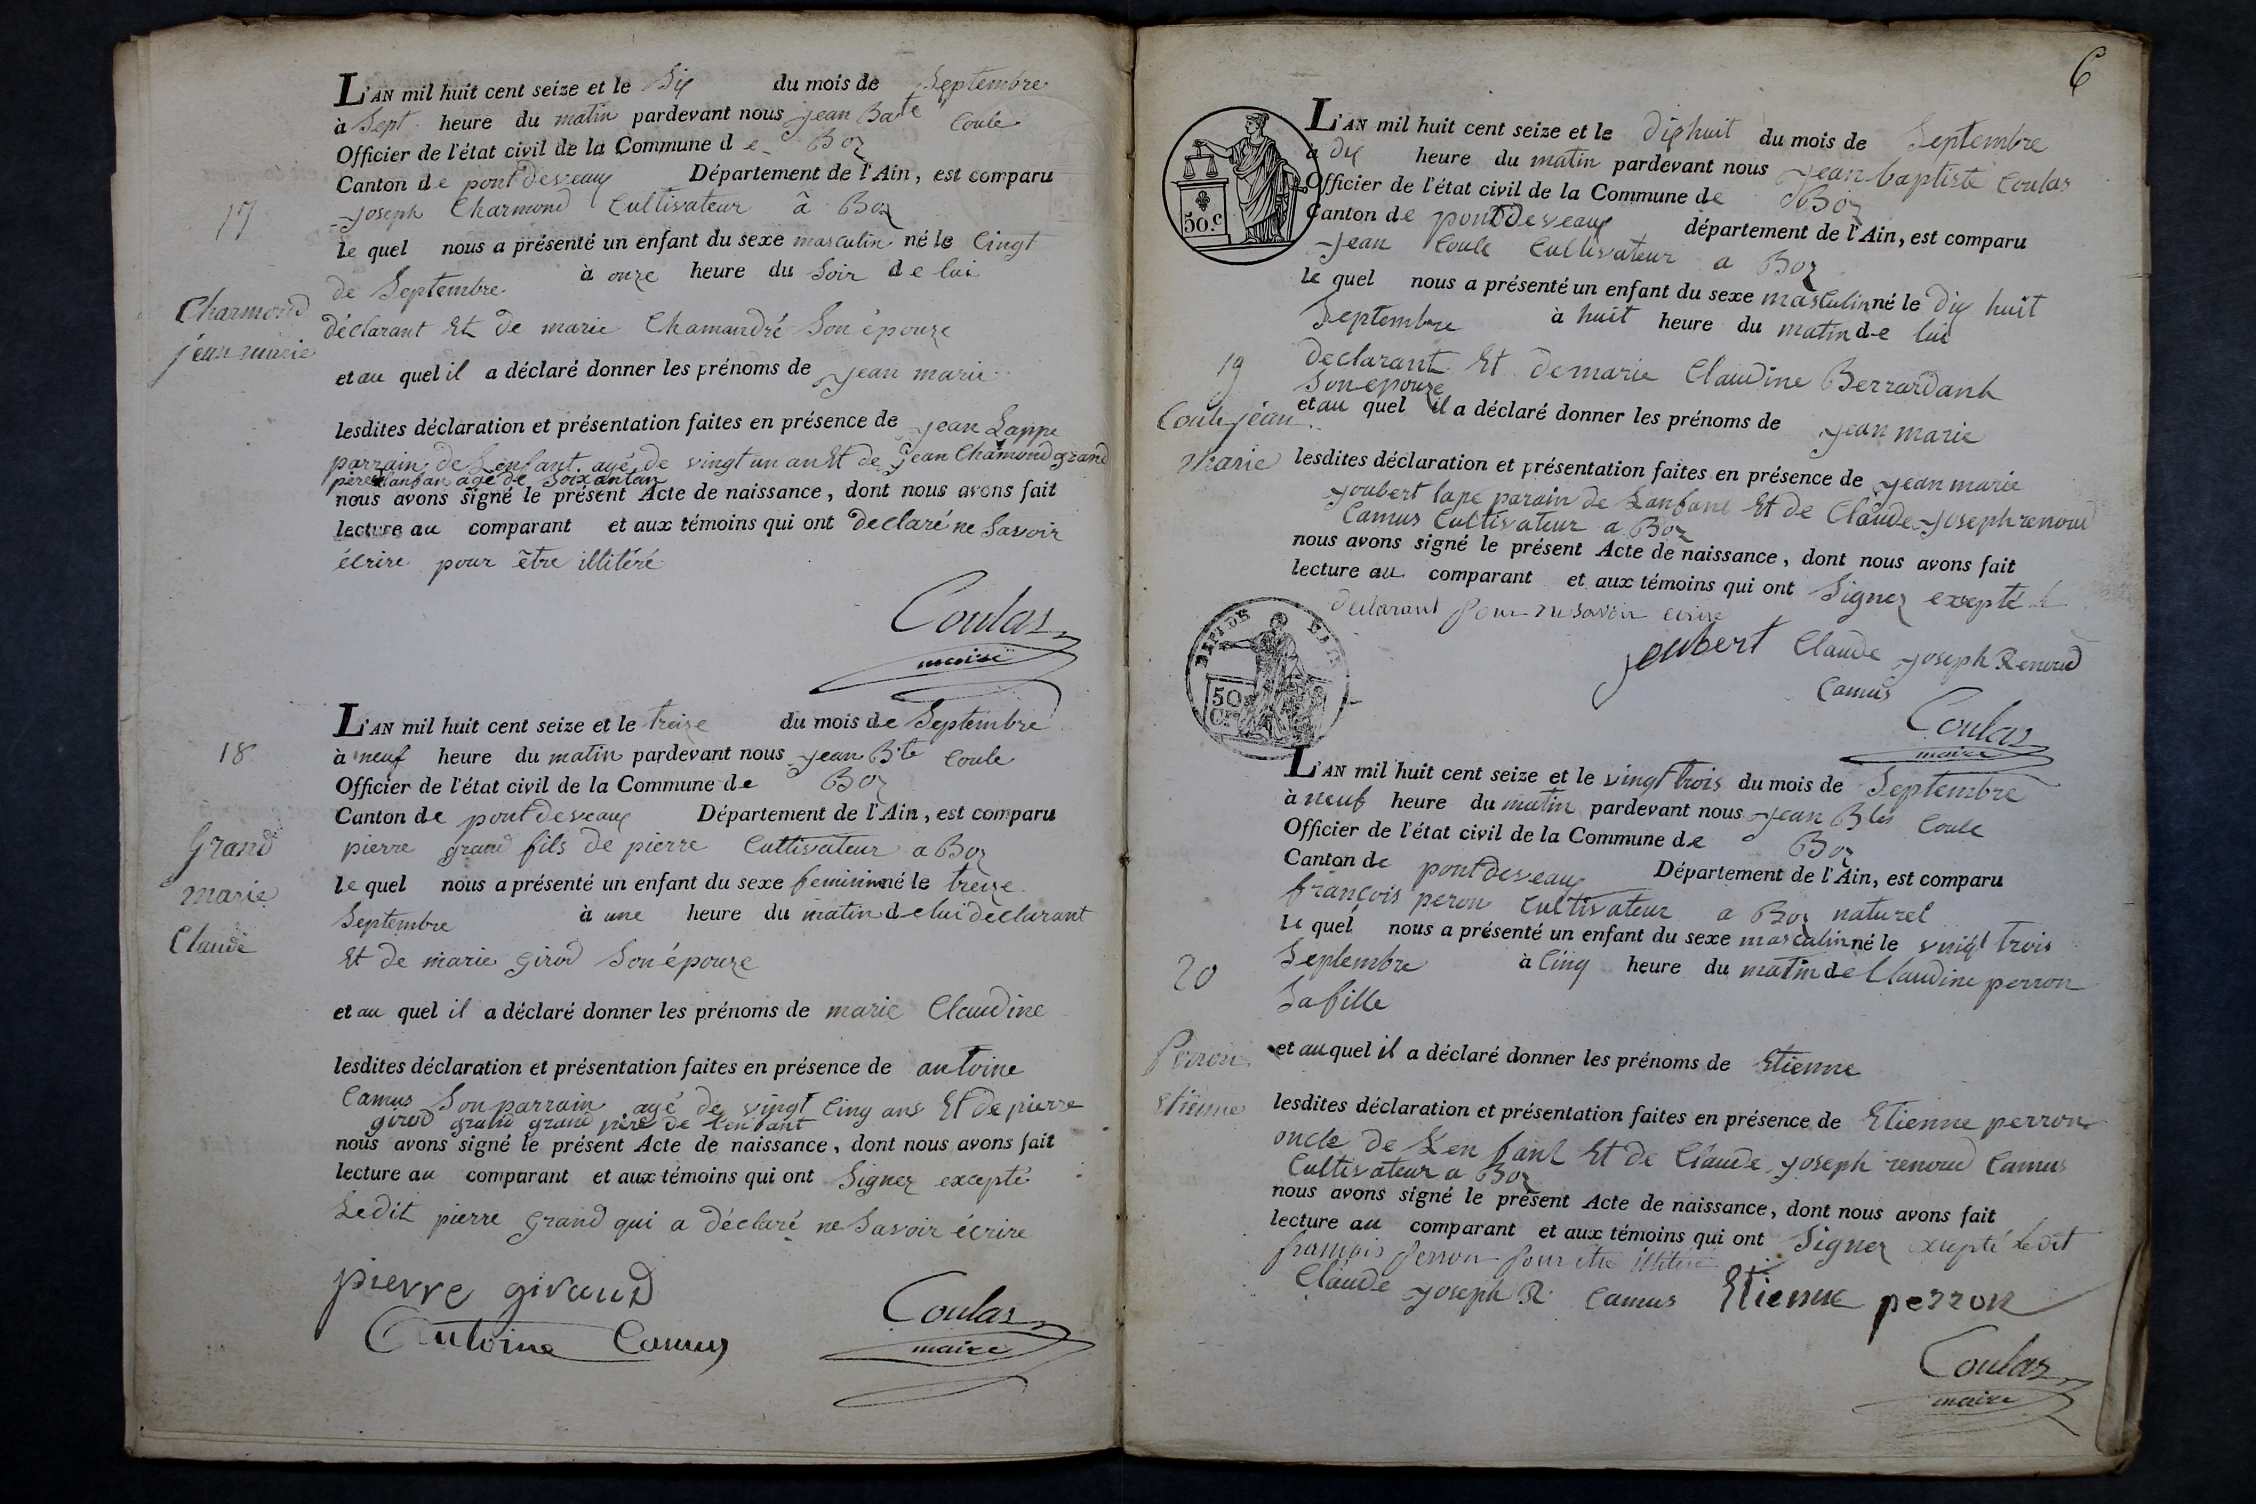 L'AN mil huit cent seize et le Six du mois de Septembre
à Sept heure du matin pardevant nous jean Bate Coule
Officier de l'état civil de la Commune de Boz
Canton de pontdeveaux Département de l'Ain, est comparu
joseph Charmond Cultivateur à Boz
17
le quel nous a présenté un enfant du sexe masculin né le Cinqt
de Septembre à onze heure du Soir de lui
Charmond
jean marie
déclarant Et de marie Chamandré Son épouze
et au quel il a déclaré donner les prénoms de jean marie
lesdites déclaration et présentation faites en présence de jean Lappe
parrain de Lenfant agé de vingt un an Et de jean Chamond grand
pere Lanfan agé de Soixantan
nous avons signé le présent Acte de naissance, dont nous avons fait
lecture au comparant et aux témoins qui ont declaré ne Savoir
écrire pour être illitéré
Coulas
maire
L'AN mil huit cent seize et le treize du mois de Septembre
18
à neuf heure du matin pardevant nous jean Bte Coule
Officier de l'état civil de la Commune de Boz
Canton de pontdeveaux Département de l'Ain, est comparu
pierre grand fils de pierre Cultivateur a Boz
Grand
marie
Claude
le quel nous a présenté un enfant du sexe feminin né le treize
Septembre à une heure du matin de lui déclarant
Et de marie girod Son épouze
et au quel il a déclaré donner les prénoms de marie Claudine
lesdites déclaration et présentation faites en présence de antoine
Camus Son parrain agé de vingt Cinq ans Et de pierre
girod grand grand père de Lenfant
nous avons signé le présent Acte de naissance, dont nous avons fait
lecture au comparant et aux témoins qui ont Signez excepté
Ledit pierre grand qui a déclaré ne Savoir écrire
pierre giraud
Antoine Camus
Coulas
maire
6
L'AN mil huit cent seize et le dixhuit du mois de Septembre
à dix heure du matin pardevant nous jean baptiste Coulas
Officier de l'état civil de la Commune de Boz
50.c
Canton de pontdeveaux département de l'Ain, est comparu
jean Coule Cultivateur a Boz
le quel nous a présenté un enfant du sexe masculin né le dix huit
Septembre à huit heure du matin de lui
19
Coule jean
marie
declarant Et de marie Claudine Berrardant
Son epouze
et au quel il a déclaré donner les prénoms de jean marie
lesdites déclaration et présentation faites en présence de jean marie
joubert lape parain de Lanfant Et de Claude joseph renoud
Camus Cultivateur a Boz
nous avons signé le présent Acte de naissance, dont nous avons fait
lecture au comparant et aux témoins qui ont Signez excepté le
declarant pour ne savoir ecrire
50
joubert Claude joseph Renoud
Camus
Coulas
maire
L'AN mil huit cent seize et le vingt trois du mois de Septembre
à neuf heure du matin pardevant nous jean Btes Coule
Officier de l'état civil de la Commune de Boz
Canton de pontdeveaux Département de l'Ain, est comparu
françois peron Cultivateur a Boz naturel
le quel nous a présenté un enfant du sexe masculin né le vingt trois
Septembre à Cinq heure du matin de Claudine perron
20
Sa fille
Perron
Etienne
et au quel il a déclaré donner les prénoms de Etienne
lesdites déclaration et présentation faites en présence de Etienne perron
oncle de Lenfant Et de Claude joseph renoud Camus
Cultivateur a Boz
nous avons signé le présent Acte de naissance, dont nous avons fait
lecture au comparant et aux témoins qui ont Signez exepté Ledit
françois perron pour etre illitéré
Claude joseph R. Camus Etienne perron
Coulas
maire